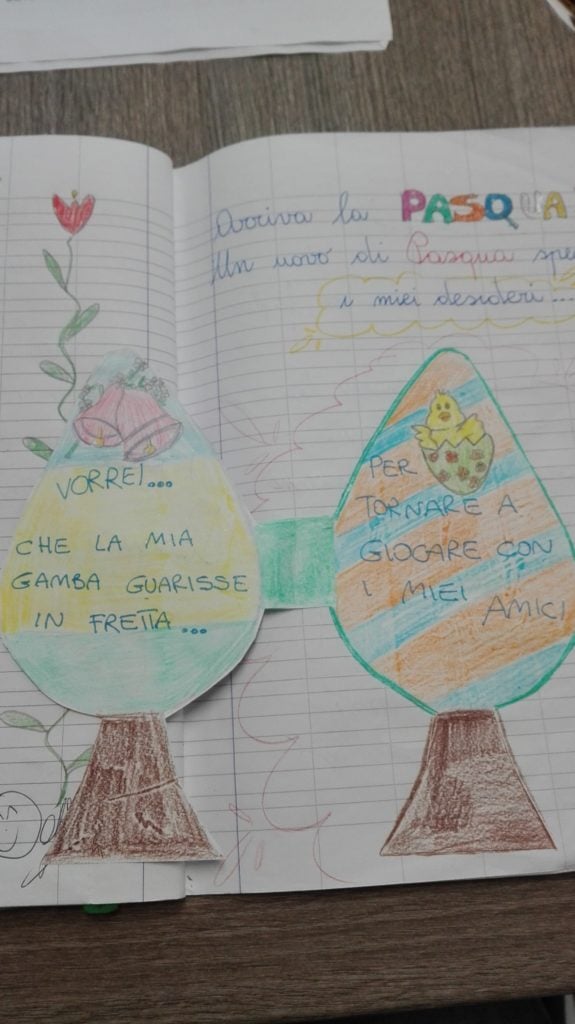 Arriva la PASQUA
Un uovo di Pasqua spe
i miei desideri...
VORREI...
CHE LA MIA
GAMBA GUARISSE
IN FRETTA...
PER
TORNARE A
GIOCARE CON
I MIEI
AMICI